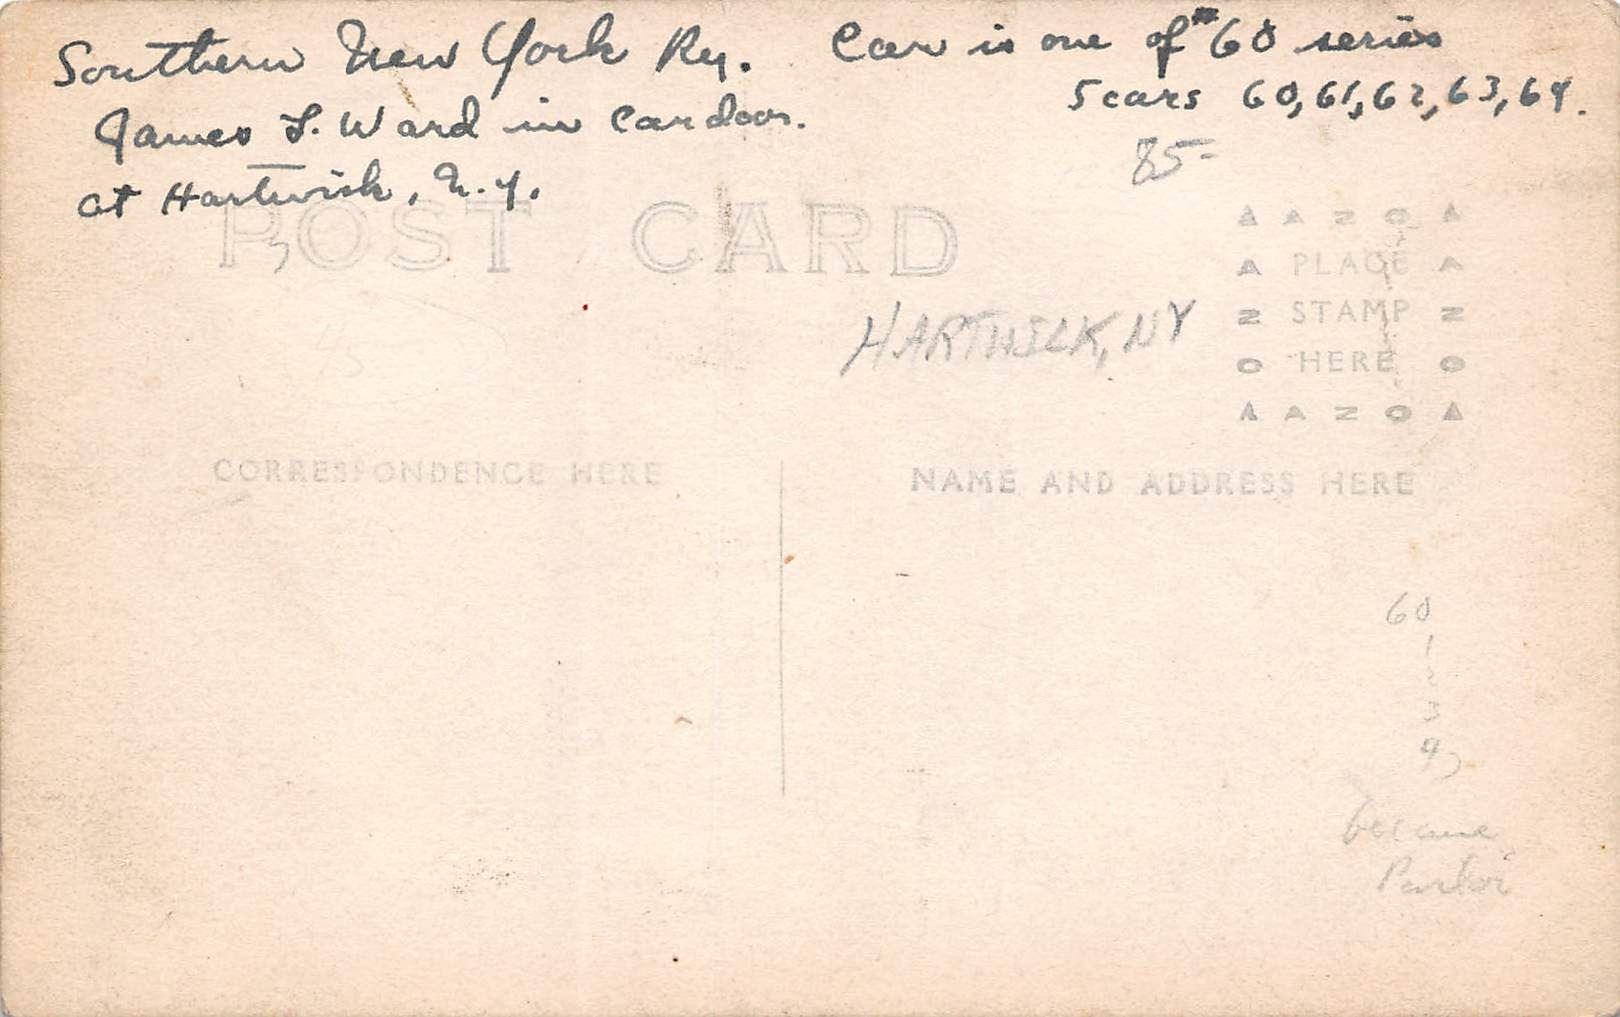 Southern New York Ry. Car is one of #60 series
5 cars 60, 61, 62, 63, 64.
James L. Ward in Car door.
at Hartwick, N.Y.
85-
POST CARD
AZO
PLACE
STAMP
HERE
AZO
HARTWICK, NY
45
CORRESPONDENCE HERE
NAME AND ADDRESS HERE
60
1
2
3
4
became
Parlor